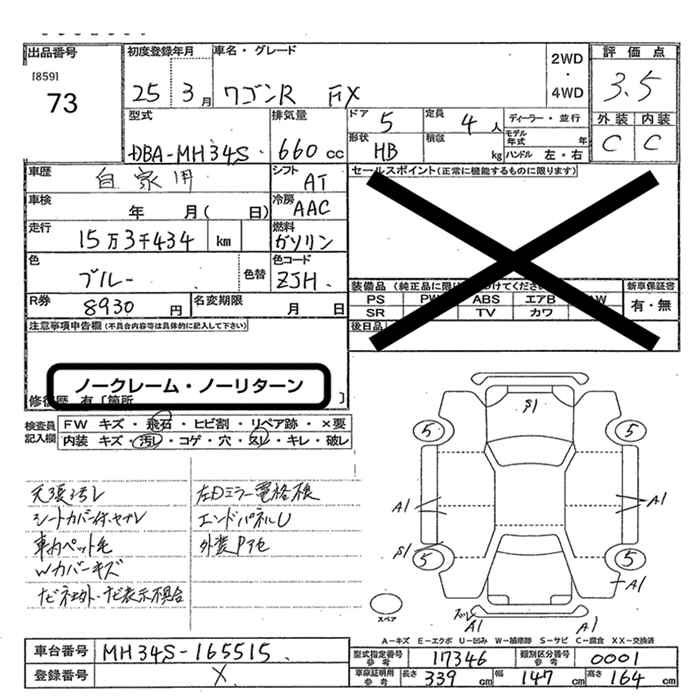 出品番号
[859]
73
初度登録年月
25 3月
車名・グレード
ワゴンR FX
2WD
・
4WD
評価点
3.5
外装 内装
C C
型式
DBA-MH34S
排気量
660 cc
ドア 5
定員 4人
形状 HB
積載 kg
ディーラー・並行
モデル年式 年
ハンドル 左・右
車歴 自家用
シフト AT
セールスポイント(正常に機能するものに限ります)
車検 年 月( 日)
冷房 AAC
走行 15万3千434 km
燃料 ガソリン
色 ブルー
色替
色コード ZJH
R券 8930円
名変期限 月 日
装備品
PS ABS エアB
SR TV カワ
後日品
新車保証書
有・無
注意事項申告欄(不具合内容等は具体的に記入して下さい)
ノークレーム・ノーリターン
修復歴 有〔箇所 〕
検査員記入欄
FW キズ・飛石・ヒビ割・リペア跡・×要
内装 キズ・汚レ・コゲ・穴・スレ・キレ・破レ
天張汚レ
シートカバー付
車内ペット毛
Wカバーキズ
ナビ表示不具合
左Dミラー電格
エンドパネルU
S1
5 5
A1 A1
S1
5 5
A1
A1 A1
スペア
A-キズ E-エクボ U-凹み W-補修跡 S-サビ C-腐食 XX-交換済
車台番号 MH34S-165515
登録番号 X
型式指定番号参考 17346
類別区分番号参考 0001
車庫証明用参考 長さ 339cm 幅 147cm 高さ 164cm